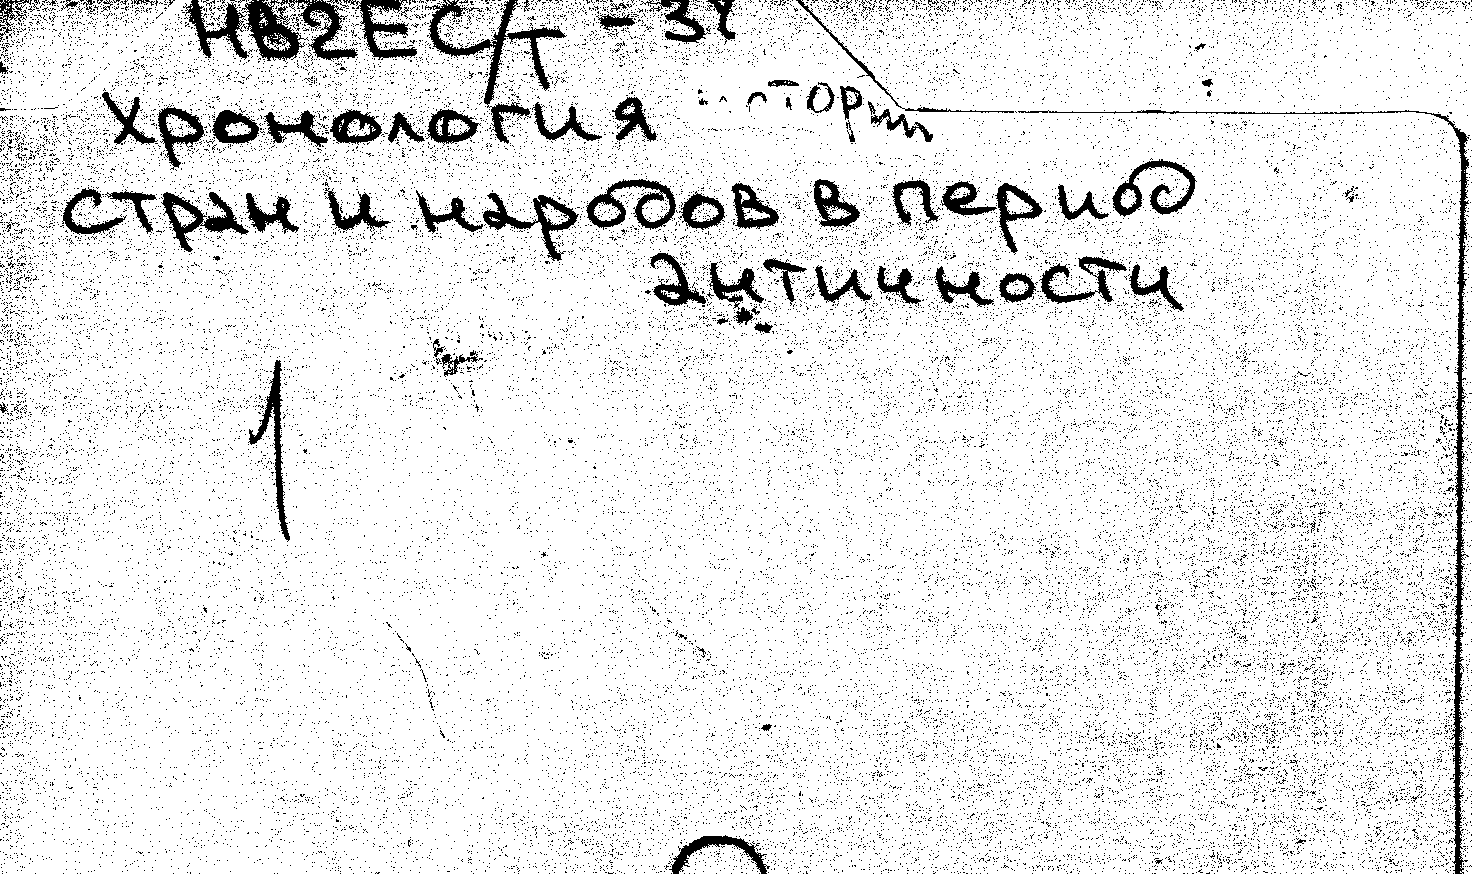 Хронология истории
стран и народов в период
античности
1